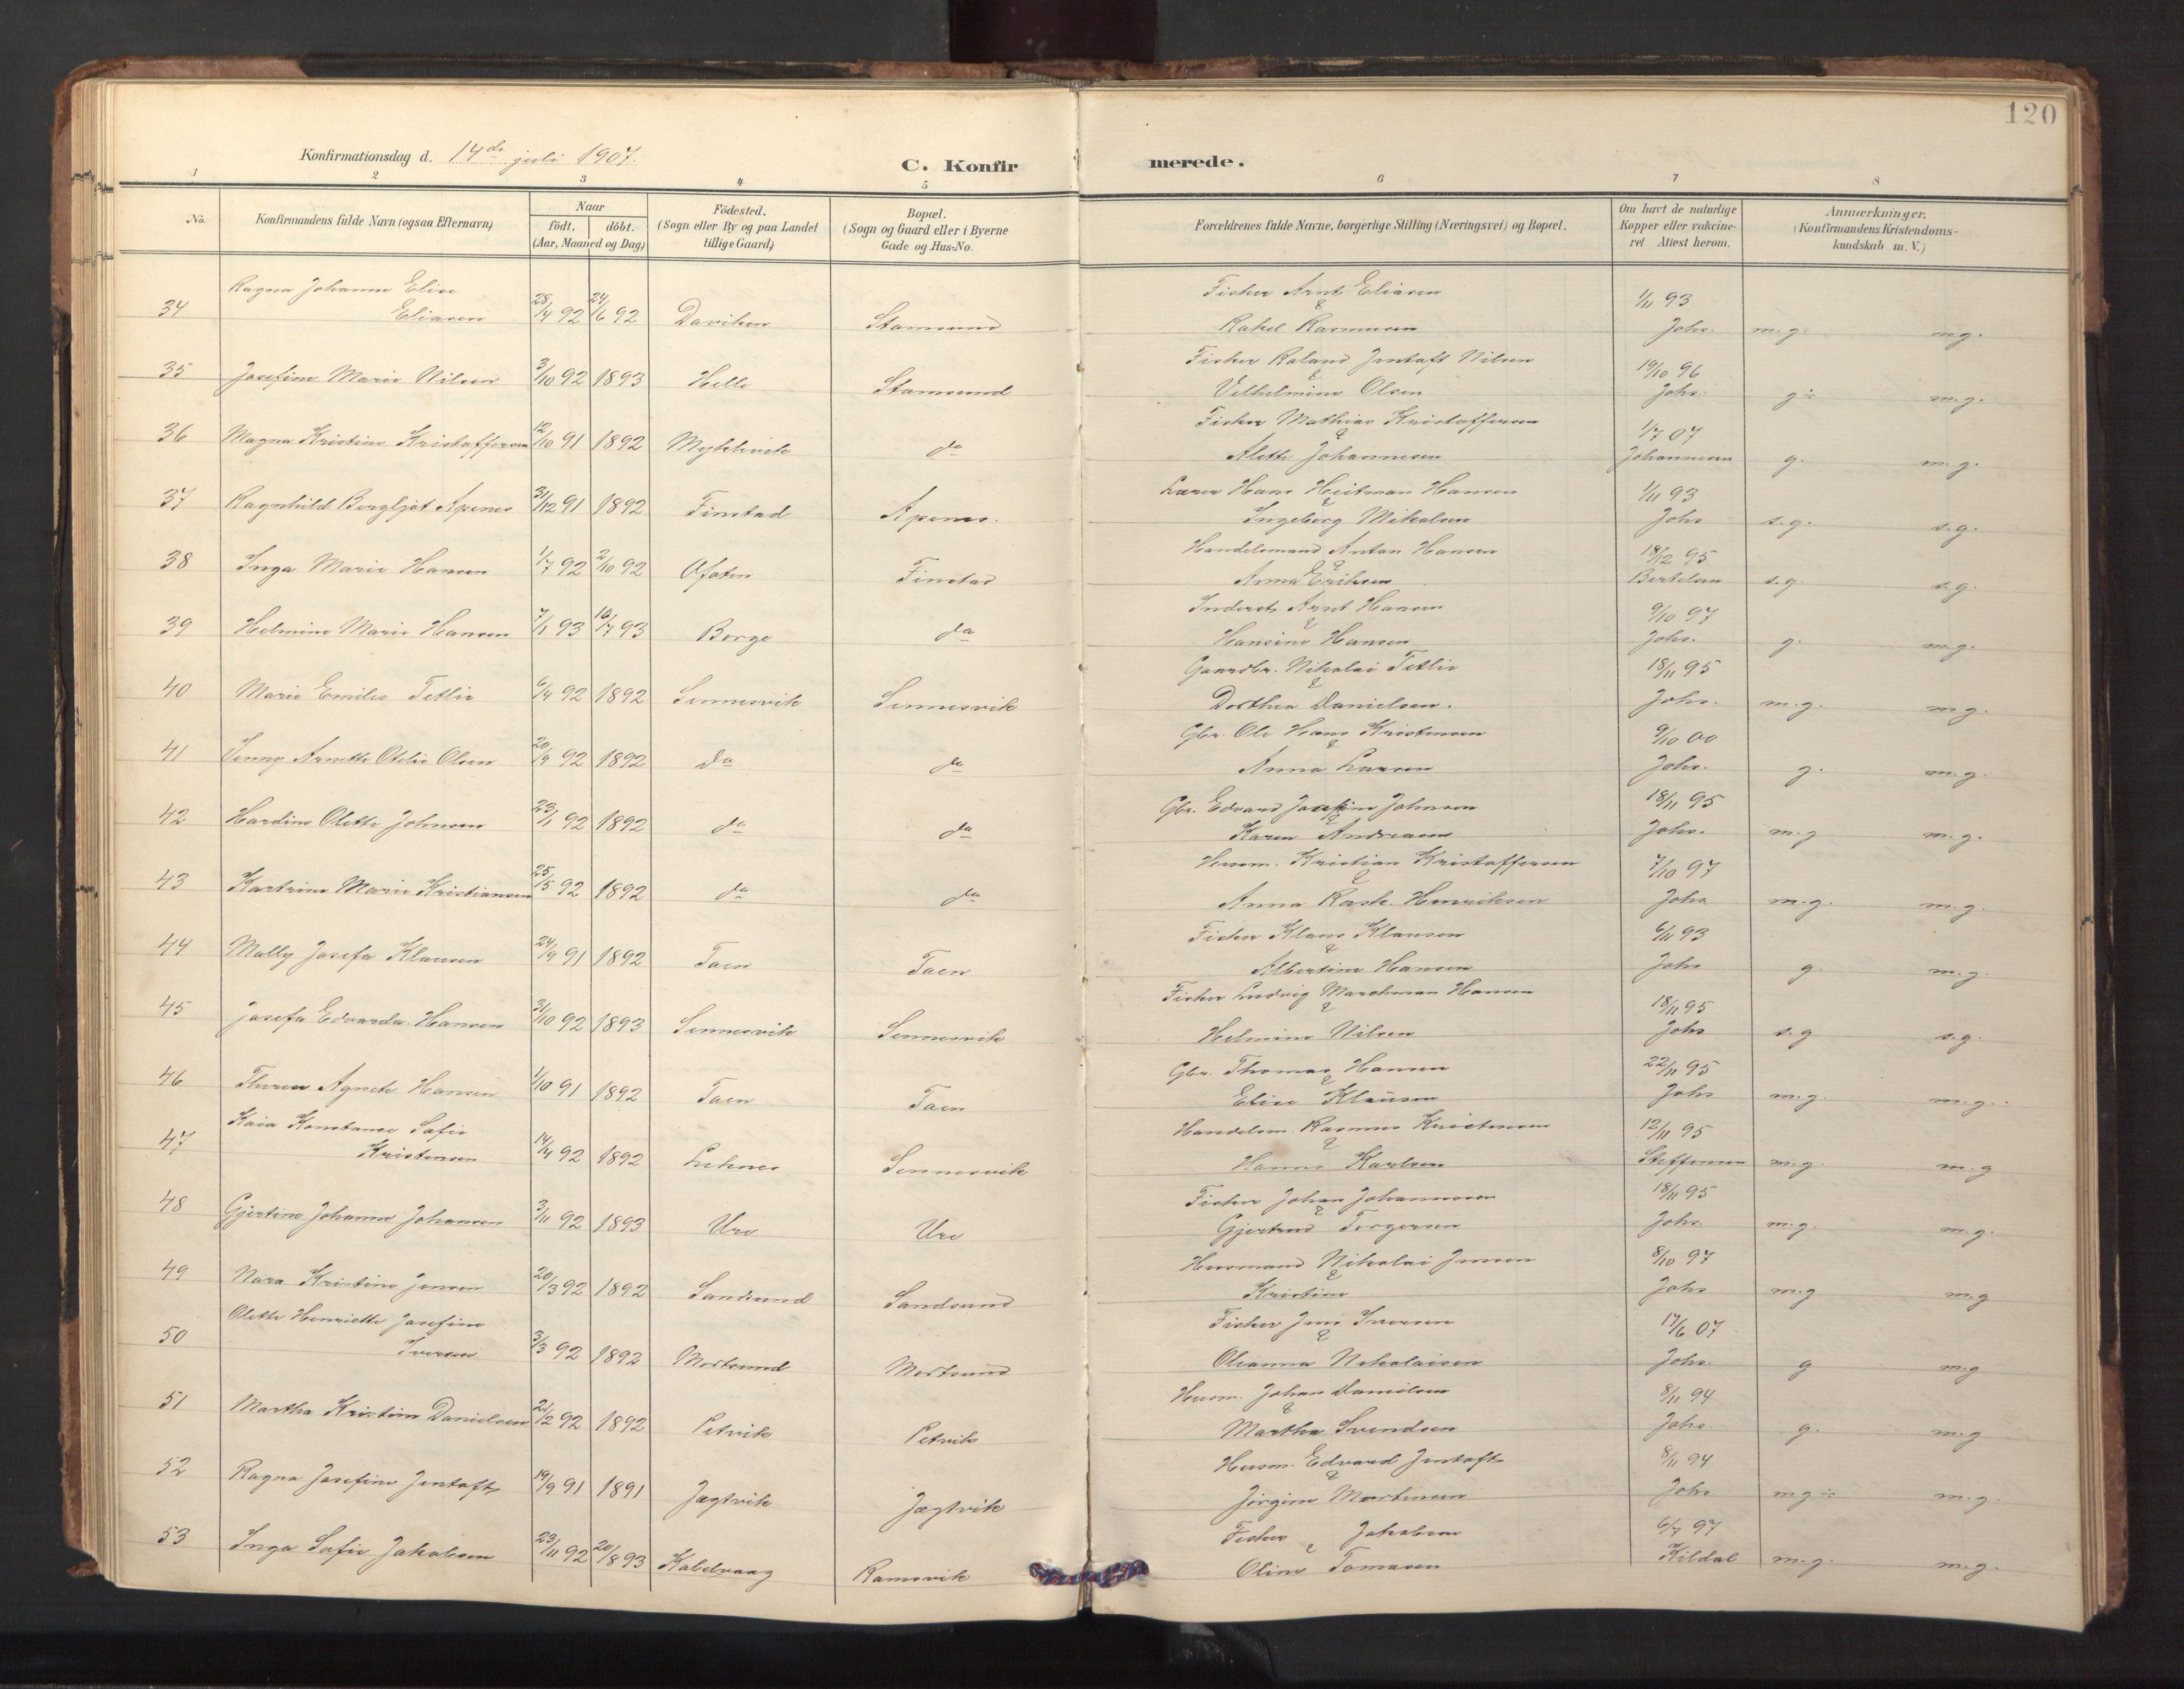 120
Konfirmationsdag d. 14de juli 1907.
C. Konfirmerede.
1 2 3 4 5 6 7 8
No.
Konfirmandens fulde Navn (ogsaa Efternavn)
Naar
födt. döbt.
(Aar, Maaned og Dag)
Födested.
(Sogn eller By og paa Landet
tillige Gaard)
Bopæl.
(Sogn og Gaard eller i Byerne
Gade og Hus-No.
Forældrenes fulde Navne, borgerlige Stilling (Næringsvei) og Bopæl.
Om havt de naturlige
Kopper eller vakcine-
ret Attest herom.
Anmærkninger,
(Konfirmandens Kristendoms-
kundskab m. V.)
Ragna Johanne Elise Fisker Arnt Eliasen
34 Eliasen 28/4 92 24/6 92 Daviken Stamsund & 1/11 93
Rakel Rasmusen Johs. m.g. m.g.
Fisker Roland Jentoft Nilsen
35 Josefine Marie Nilsen 3/10 92 1893 Helle Stamsund & 19/10 96
Vilhelmine Olsen Johs. g÷ m.g.
Fisker Mathias Kristoffersen
36 Magna Kristine Kristoffersen 12/10 91 1892 do & 1/7 07
Alette Johannesen Johannesen g. m.g.
Lærer Hans Heitman Hansen
37 Ragnhild Bergljot Apenes 31/12 91 1892 Finstad Apenes. & 1/11 93
Ingeborg Mikalsen Johs s.g. s.g.
Handelsmand Anton Hansen
38 Inga Marie Hansen 1/7 92 2/10 92 Ofoten Finstad & 18/12 95
Anna Eriksen Bertelsen s.g. s.g.
Inderst Arnt Hansen
39 Helmine Marie Hansen 7/1 93 16/7 93 Borge do & 9/10 97
Hansine Hansen Johs. g. m.g.
Gaardbr. Nikolai Tetlie
40 Marie Emilie Tetlie 6/4 92 1892 Sennesvik Sennesvik & 18/11 95
Dorthea Danielsen. Johs. m.g. m.g.
Gbr. Ole Hans Kristensen
41 Jenny Arnette Otelie Olsen 20/9 92 1892 do do & 9/10 00
Anna Larsen Johs. g. m.g.
Gbr. Edvard Joakim Johnsen
42 Hardine Olette Johnsen 23/1 92 1892 do do & 18/11 95
Karen Andreasen Johs. m.g m.g.
Husm. Kristian Kristoffersen
43 Kartrine Marie Kristiansen 25/5 92 1892 do do & 7/10 97
Anna Henriksen Johs m.g. m.g.
Fisker Klaus Klausen
44 Mally Josefa Klausen 24/9 91 1892 Taen Taen & 6/11 93
Albertine Hansen Johs g. m.g.
Fisker Ludvig Marchman Hansen
45 Josefa Edvarda Hansen 31/10 92 1893 Sennesvik Sennesvik & 18/11 95
Helmine Nilsen Johs s.g s.g.
Gbr. Thomas Hansen
46 Therese Agnete Hansen 1/10 91 1892 Taen Taen & 22/11 95
Elise Klausen Johs m.g. m.g.
Kaia Konstanse Sofie Handelsm. Rasmus Kristensen
47 Kristensen 14/4 92 1892 Leknes Sennesvik & 12/11 95
Hanna Karlsen Steffensen m.g. m.g
Fisker Johan Johannesen
48 Gjertine Johanne Johansen 3/11 92 1893 Ure Ure & 18/11 95
Gjertrud Torgersen Johs. m.g. m.g.
Husmand Nikolai Jensen
49 Nora Kristine Jensen 20/3 92 1892 Sandsund Sandsund & 8/10 97
Kristine Johs m.g m.g
Olette Henriette Josefine Fisker Jens Iversen
50 Iversen 3/3 92 1892 Mortsund Mortsund & 17/6 07
Oleanna Nikolaisen Johs. g m.g
Husm. Johan Danielsen
51 Martha Kristine Danielsen 21/2 92 1892 Petvik Petvik & 8/11 94
Martha Svendsen Johs. g. m.g
Husm. Edvard Jentoft
52 Ragna Josefine Jentoft 19/9 91 1891 Jægtvik Jægtvik & 8/11 94
Jörgine Martinsen Johs m.g÷ m.g.
Fisker Jakobsen
53 Inga Sofie Jakobsen 23/11 92 20/8 93 Kabelvaag Ramsvik & 6/7 97
Oline Tomasen Kildal m.g. m.g.